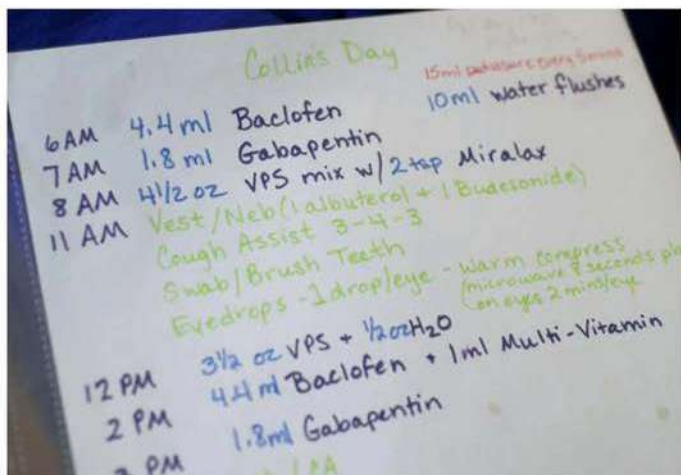 Collin's Day
15ml every 5 mins
10ml water flushes
6 AM 4.4 ml Baclofen
7 AM 1.8 ml Gabapentin
8 AM 4 1/2 oz VPS mix w/ 2 tsp Miralax
11 AM Vest/Neb (1 albuterol + 1 Budesonide)
Cough Assist 3-4-3
Swab/Brush Teeth
Eyedrops - 1 drop/eye - warm compress
(microwave 8 seconds
on eyes 2 mins/eye
12 PM 3 1/2 oz VPS + 1/2 oz H2O
2 PM 4.4 ml Baclofen + 1 ml Multi-Vitamin
PM 1.8 ml Gabapentin